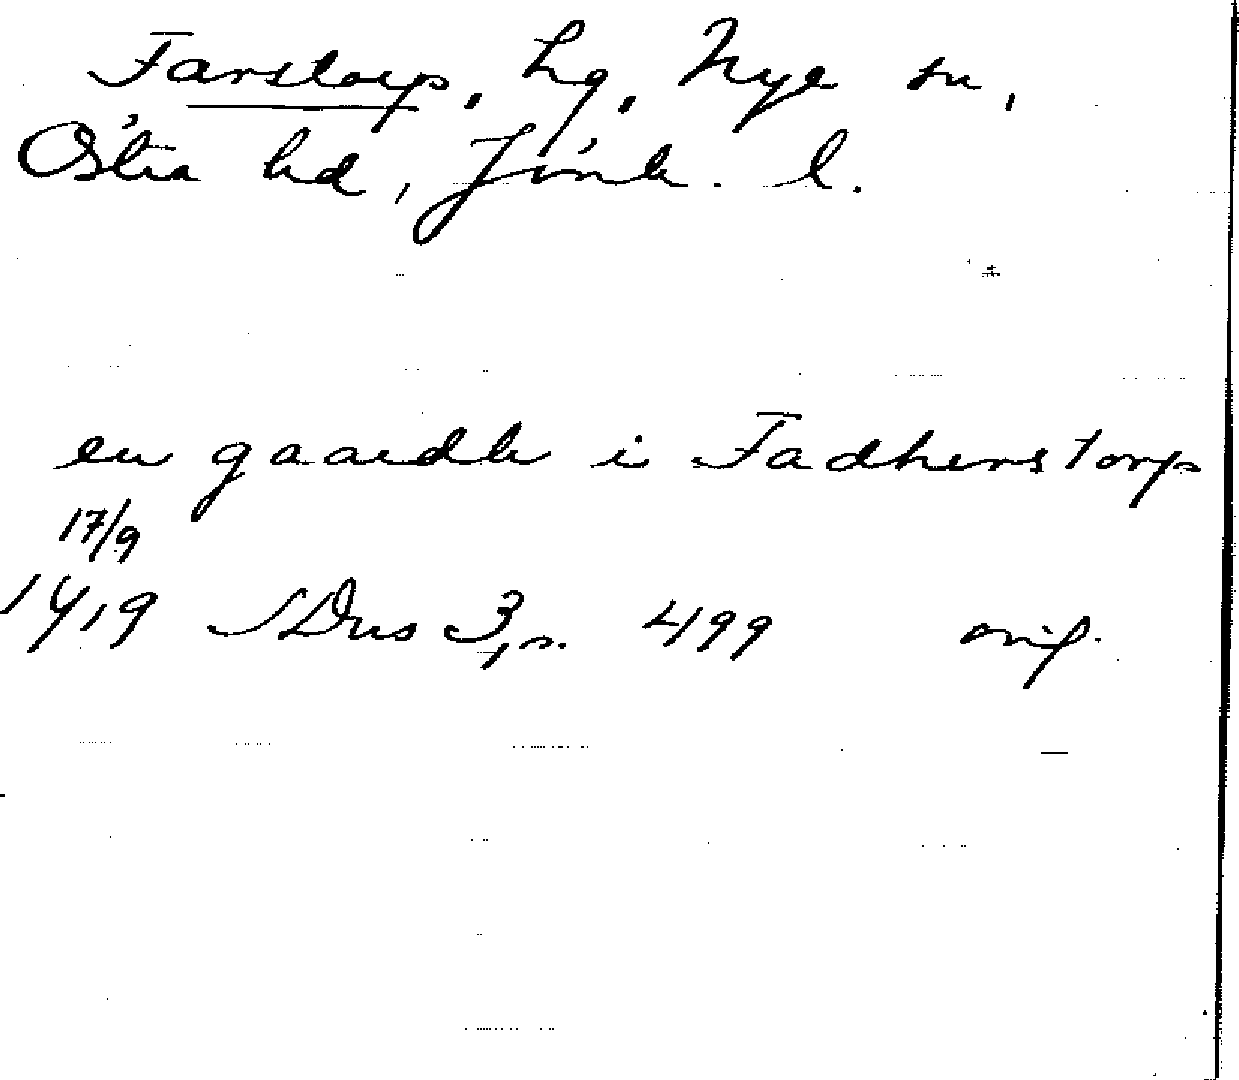 Farstorp, hg, Nye sn,
Östra hd, Jönk. l.
en gaardh i Fadherstorp
17/9
1419 SDns 3, s. 499 orig.